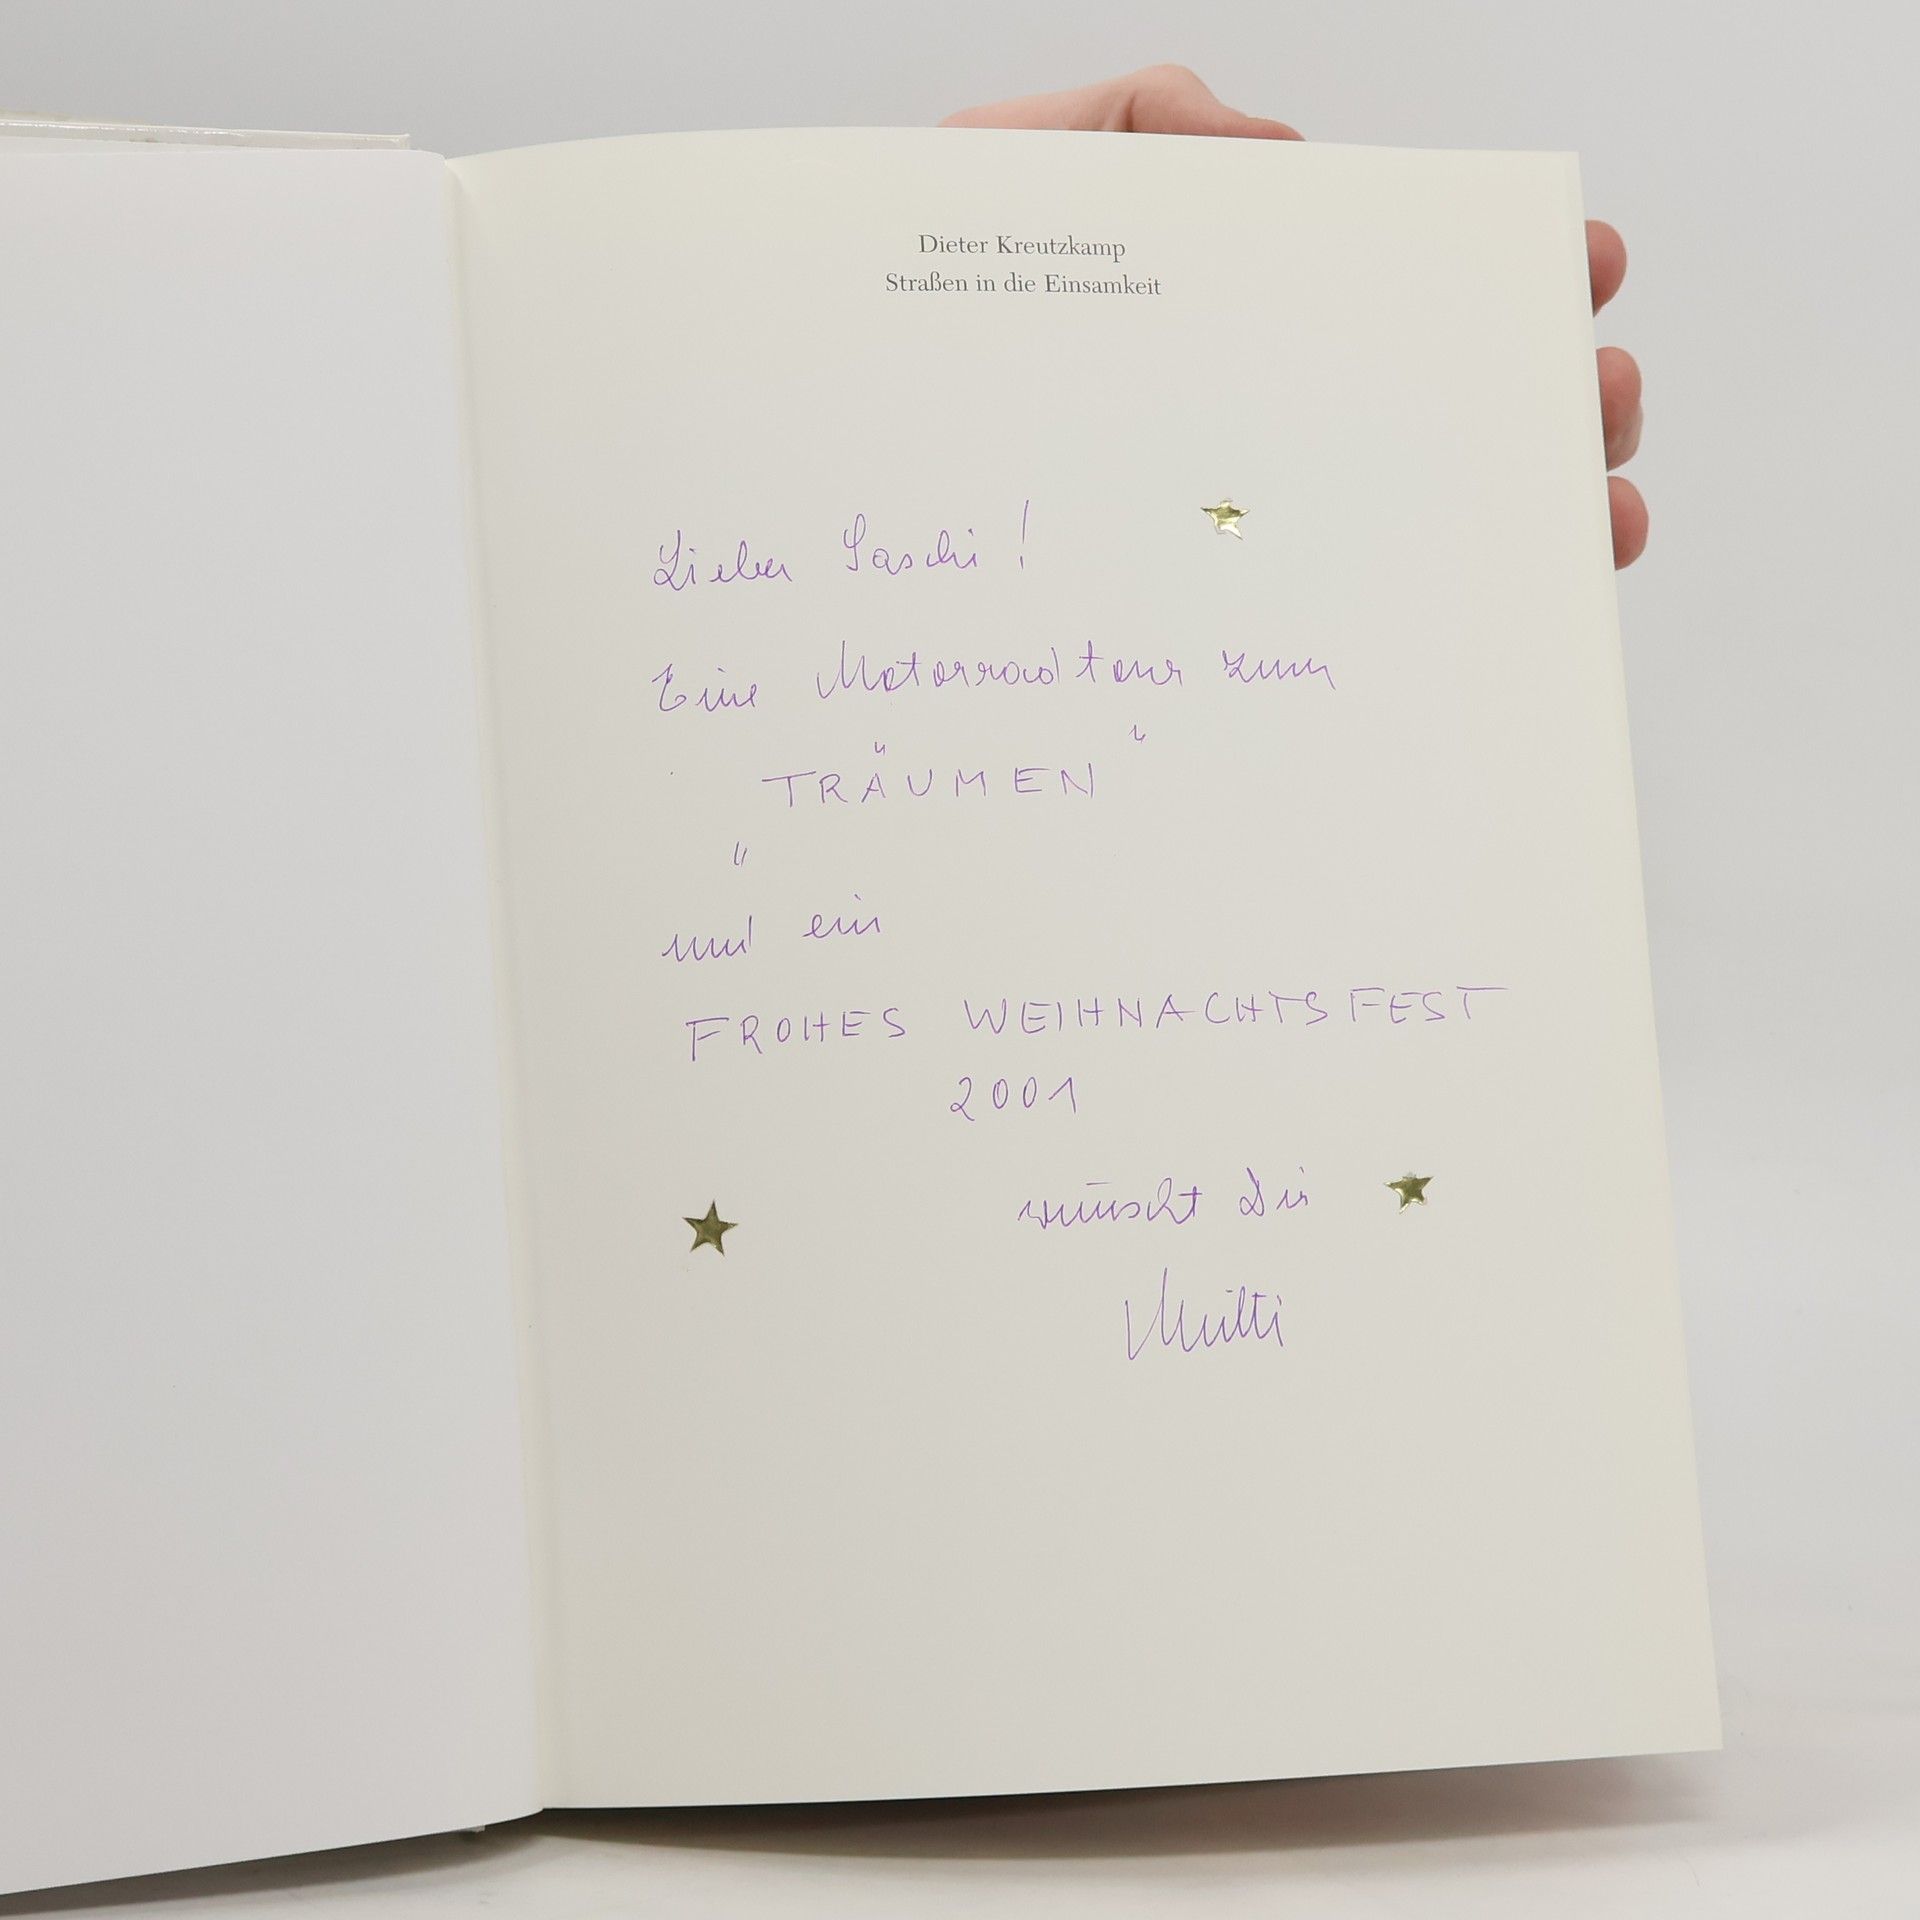 Dieter Kreutzkamp
Straßen in die Einsamkeit
Lieber Saschi!
Eine Motorradtour zum
„TRÄUMEN“
und ein
FROHES WEIHNACHTSFEST
2001
wünscht Dir
Mutti